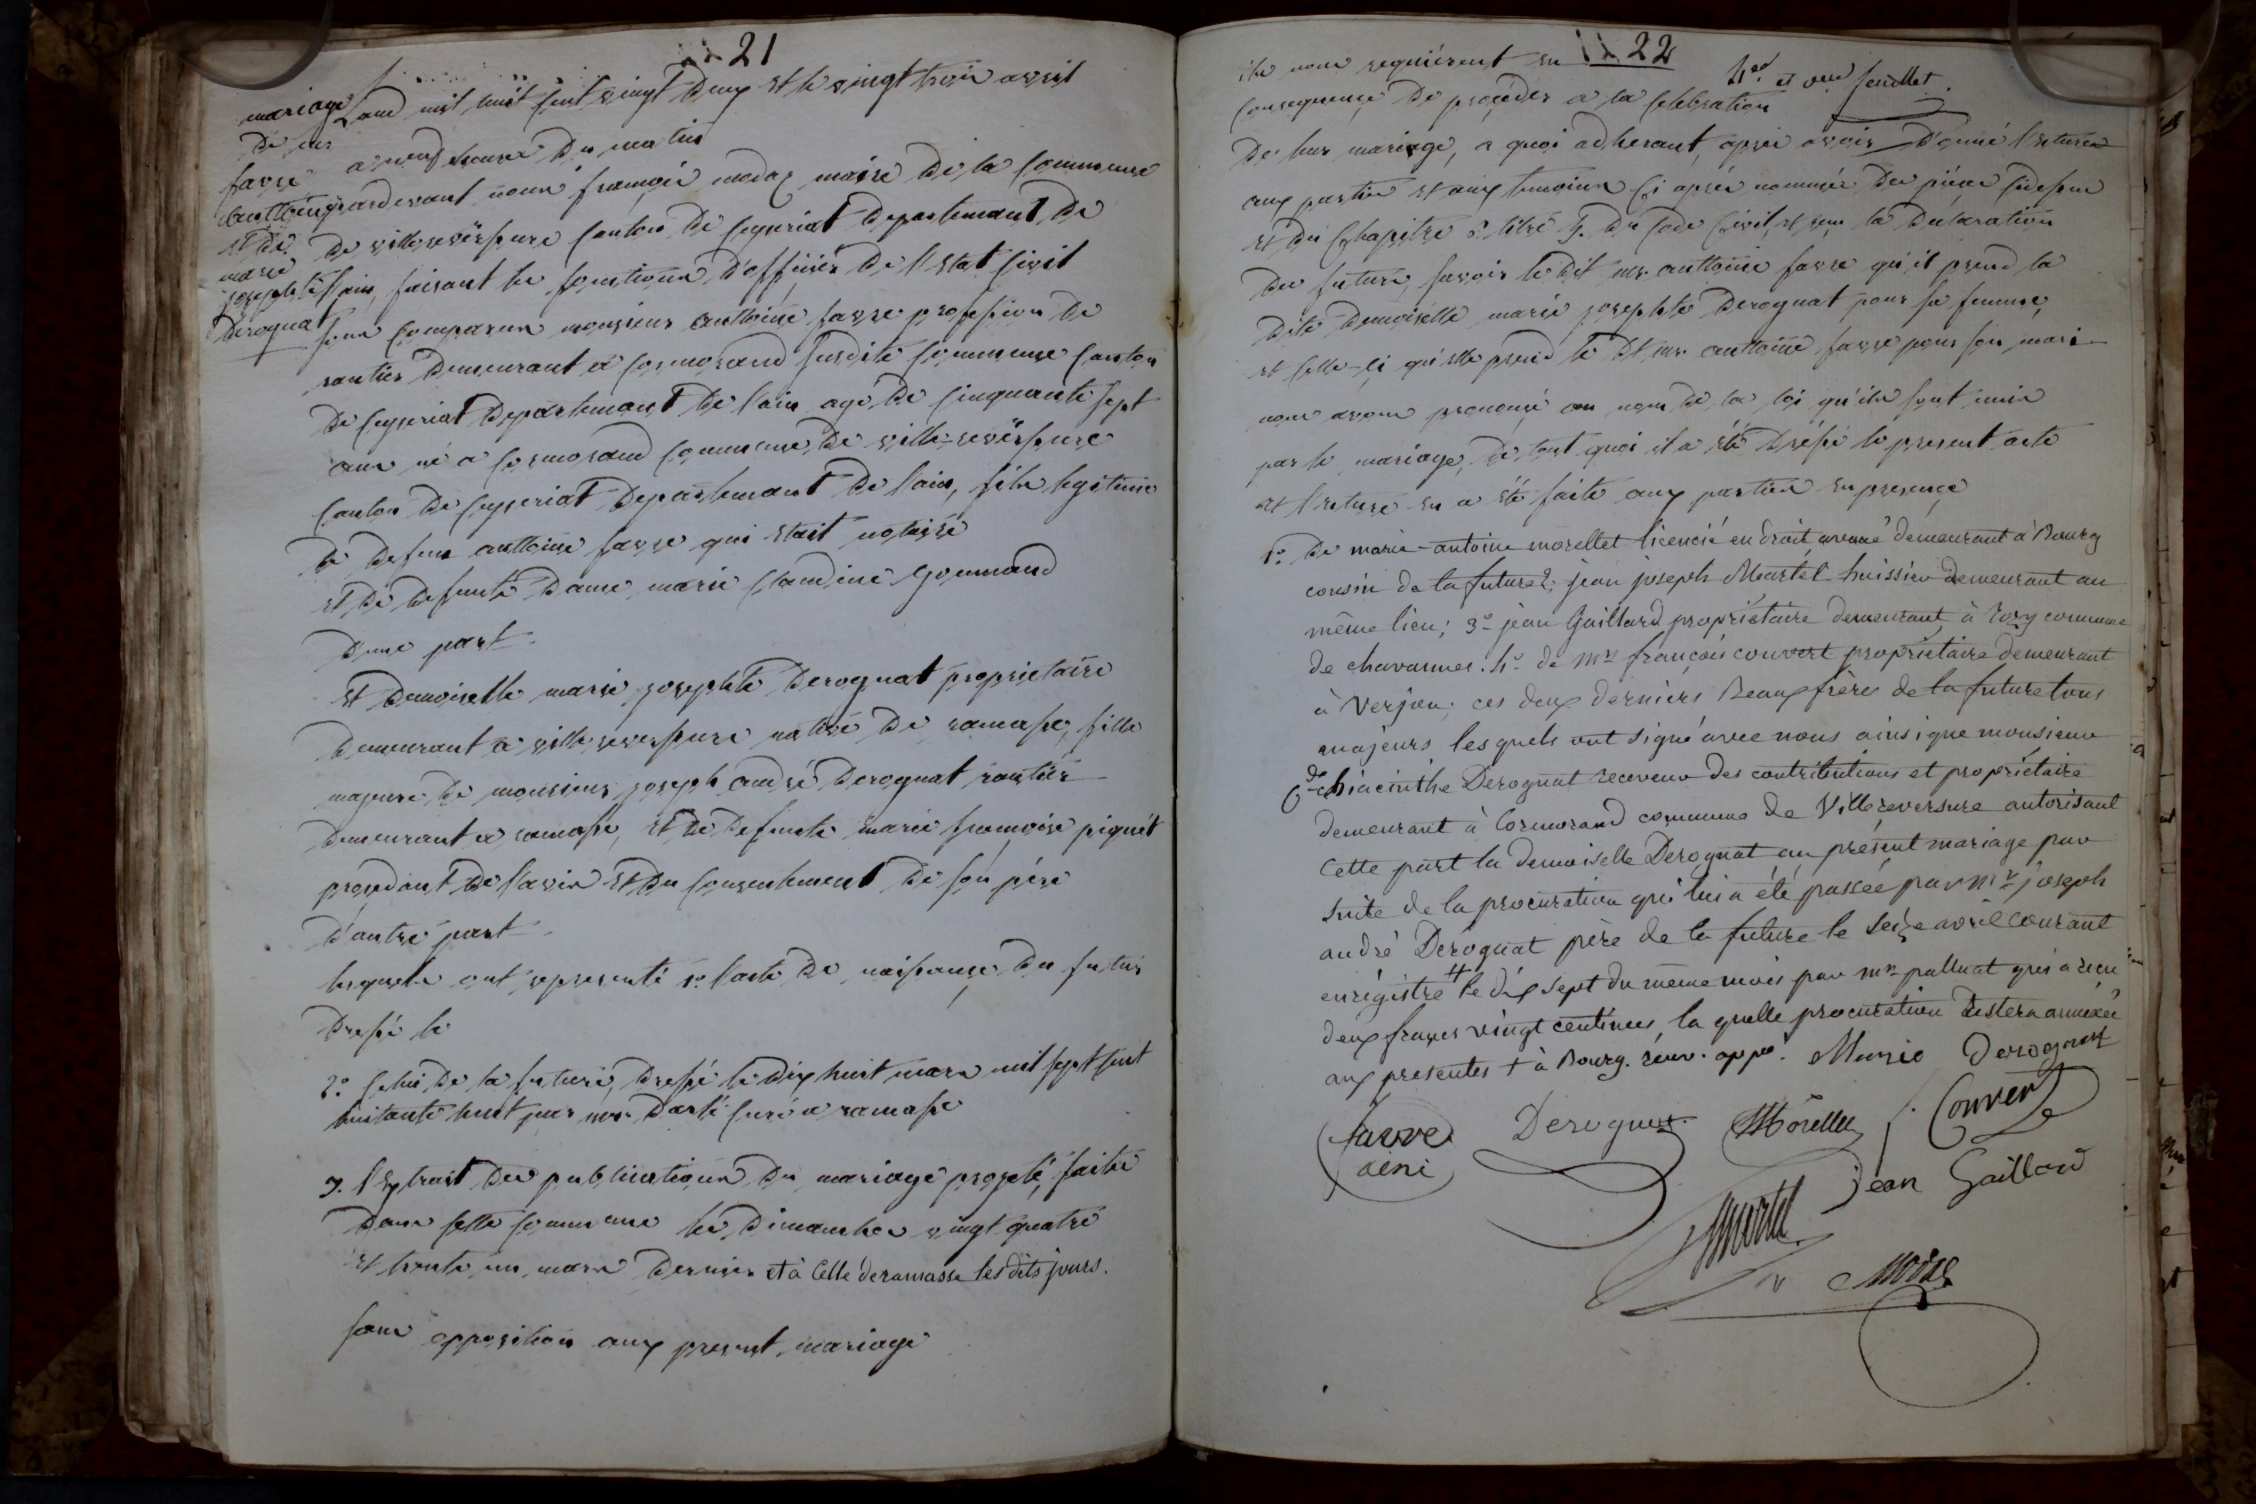 21
mariage
de mr
favre
anttoine
et de
marie
josephte
Derognat
L'and mil huit cent vingt deux et le vingt trois avril
a neuf heures du matin
pardevant nous françois modaz maire de la commune
de villereverssure canton de ceyzeriat departemant de
l'ain, faisant les fonctions d'officier de l'etat civil
sont comparus monsieur anttoine favre profession de
rantier demeurant a cormorand susdite commune canton
de ceyzeriat departemant de l'ain agé de cinquante sept
ans né a cormorand commune de ville-reverssure
canton de ceyzeriat departemant de l'ain, fils legitime
de defunt anttoine favre qui etait notaire
et de defunte dame marie claudine gommand
d'une part
et demoiselle marie josephte derognat proprietaire
demeurant a villereverssure native de ramasse, fille
majeure de monsieur joseph andré derognat rantier
demeurant a ramasse, et de defunte marie françoise piquet
procedant de l'avis et du consentement de son père
d'autre part
lesquels ont representé 1o l'acte de naissance du futur
dressé le
2o celui de la future, dressé le dix huit mars mil sept cent
huitante huit par mr. curé a ramasse
3. l'extrait des publications du mariage projeté, faite
dans cette commune les dimanches vingt quatre
et trente un mars dernier et à celle de ramasse les dits jours.
sans opposition aux present mariage
22
4me et 5me feuillet.
ils nous requièrent en
consequence de proceder a la celebration
de leur mariage, a quoi adherant, après avoir donné lecture
aux parties et aux temoins ci après nommés des pièces cidessus
et du chapitre 6 titre 5. du code civil et sur la declaration
des futurs, savoir le dit mr. anttoine favre qu'il prend la
dite demoiselle marie josephte derognat pour sa femme,
et celle-ci qu'elle prend le dt mr. anttoine favre pour son mari
nous avons prononcé au nom de la loi qu'ils sont unis
par le mariage, de tout quoi il a été dréssé le present acte
et lecture en a été faite aux parties en presence
1o. de marie-antoine morellet licencié en droit avoué demeurant à Bourg
cousin de la future 2. jean joseph Martel huissier demeurant au
même lieu; 3o jean Gaillard propriétaire demeurant à rosy commune
de chavannes. 4o. de mr françois convert propriétaire demeurant
à Verjon; ces deux derniers Beaux frères de la future tous
majeurs lesquels ont signé avec nous ainsi que monsieur
hiacinthe Derognat receveur des contributions et propriétaire
demeurant à Cormorand commune de Villereversure autorisant
cette part la demoiselle Derognat au présent mariage par
suite de la procuration qui lui a été passée par mr joseph
andré Derognat père de la future le seize avril courant
enrégistré # le dix sept du meme mois par mr palluat qui a recu
deux francs vingt centimes, la quelle procuration restera annexée
aux presentes + à Bourg. renv. appé. Marie Derognat
favre
aîné
Derognat
Morellet
f. Convert
Jean Gaillard
Martel
Modas